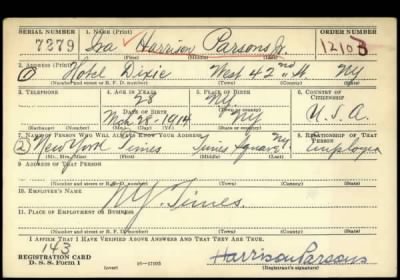 SERIAL NUMBER 1. NAME (Print) ORDER NUMBER
7279 Ira Harrison Parsons Jr.
(First) (Middle) (Last)
2. ADDRESS (Print)
Hotel Dixie West 42nd St. NY
(Number and street or R. F. D. number) (Town) (County) (State)
3. TELEPHONE 4. AGE IN YEARS 5. PLACE OF BIRTH 6. COUNTRY OF CITIZENSHIP
28 NY
DATE OF BIRTH (Town or county)
Mar-28-1914 NY U.S.A.
(Exchange) (Number) (Mo.) (Day) (Yr.) (State or country)
7. NAME OF PERSON WHO WILL ALWAYS KNOW YOUR ADDRESS 8. RELATIONSHIP OF THAT PERSON
2 New York Times Times Square NY Employer
(Mr., Mrs., Miss) (First) (Middle) (Last)
9. ADDRESS OF THAT PERSON
(Number and street or R. F. D. number) (Town) (County) (State)
10. EMPLOYER'S NAME
NY. Times.
11. PLACE OF EMPLOYMENT OR BUSINESS
(Number and street or R. F. D. number) (Town) (County) (State)
I AFFIRM THAT I HAVE VERIFIED ABOVE ANSWERS AND THAT THEY ARE TRUE.
143
REGISTRATION CARD
D. S. S. Form 1 (over) Harrison Parsons
(Registrant's signature)